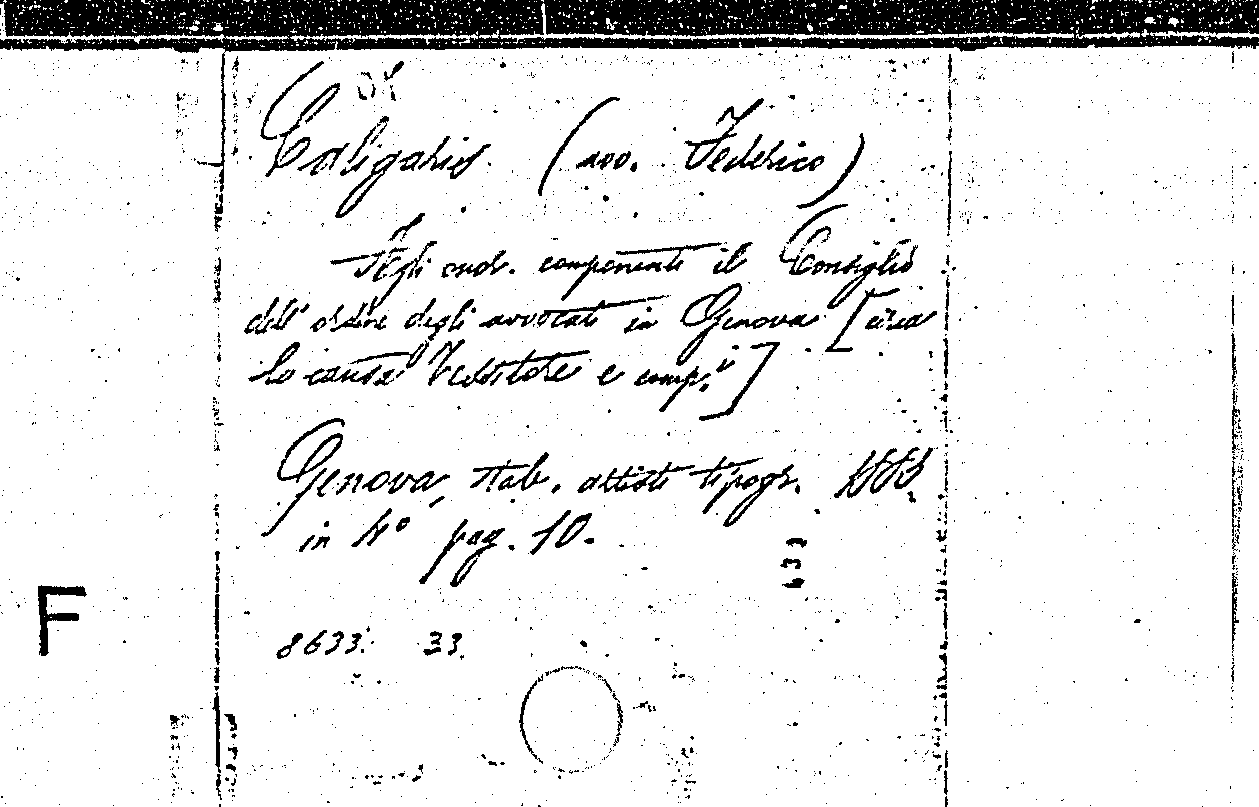 Caligaris (avv. Federico)
Agli onor. componenti il Consiglio
dell' ordine degli avvocati in Genova [circa
la causa e comp.i]
Genova, stab. artisti tipogr.
in 4° pag. 10.
F
8633. 33.